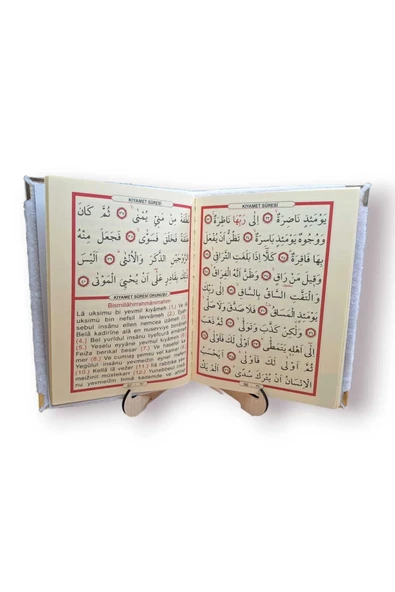 KIYAMET SÛRESİ
يَوْمَئِذٍ نَاضِرَةٌ اِلٰى رَبِّهَا نَاظِرَةٌ
وَوُجُوهٌ يَوْمَئِذٍ بَاسِرَةٌ تَظُنُّ اَنْ يُفْعَلَ
بِهَا فَاقِرَةٌ كَلَّا اِذَا بَلَغَتِ التَّرَاقِ
وَقِيلَ مَنْ رَاقٍ وَظَنَّ اَنَّهُ الْفِرَاقُ
وَالْتَفَّتِ السَّاقُ بِالسَّاقِ اِلٰى رَبِّكَ
يَوْمَئِذٍ الْمَسَاقُ فَلَا صَدَّقَ وَلَا صَلّٰى
وَلٰكِنْ كَذَّبَ وَتَوَلّٰى ثُمَّ ذَهَبَ
اِلٰى اَهْلِهِ يَتَمَطّٰى اَوْلٰى لَكَ فَاَوْلٰى
ثُمَّ اَوْلٰى لَكَ فَاَوْلٰى اَيَحْسَبُ
الْاِنْسَانُ اَنْ يُتْرَكَ سُدًى
KIYAMET SÛRESİ
نُطْفَةً مِنْ مَنِيٍّ يُمْنٰى ثُمَّ كَانَ
عَلَقَةً فَخَلَقَ فَسَوّٰى فَجَعَلَ مِنْهُ
الزَّوْجَيْنِ الذَّكَرَ وَالْاُنْثٰى اَلَيْسَ
ذٰلِكَ بِقَادِرٍ عَلٰى اَنْ يُحْيِيَ الْمَوْتٰى
KIYAMET SÛRESİ OKUNUŞU
Bismillâhirrahmânirrahîm
Lâ uksimu bi yevmil kıyâmeh (1.)
uksimu bin nefsil levvâmeh (2.)
sebul insânu ellen necmea izâmeh (3.)
Belâ kâdirîne alâ en nusevviye benâneh
(4.) Bel yurîdul insânu liyefcura emâmeh
(5.) Yeselu eyyâne yevmul kıyâmeh (6.)
Feizâ berikal besar (7.) Ve hasefel
mer (8.) Ve cumiaş şemsu vel kamer
Yegûlul insânu yevmeizin eynel
(10.) Kellâ lâ vezer (11.) İlâ rabbike
meizinil müstekarr (12.) Yunebbeul
nu yevmeizin bimâ kaddeme ve